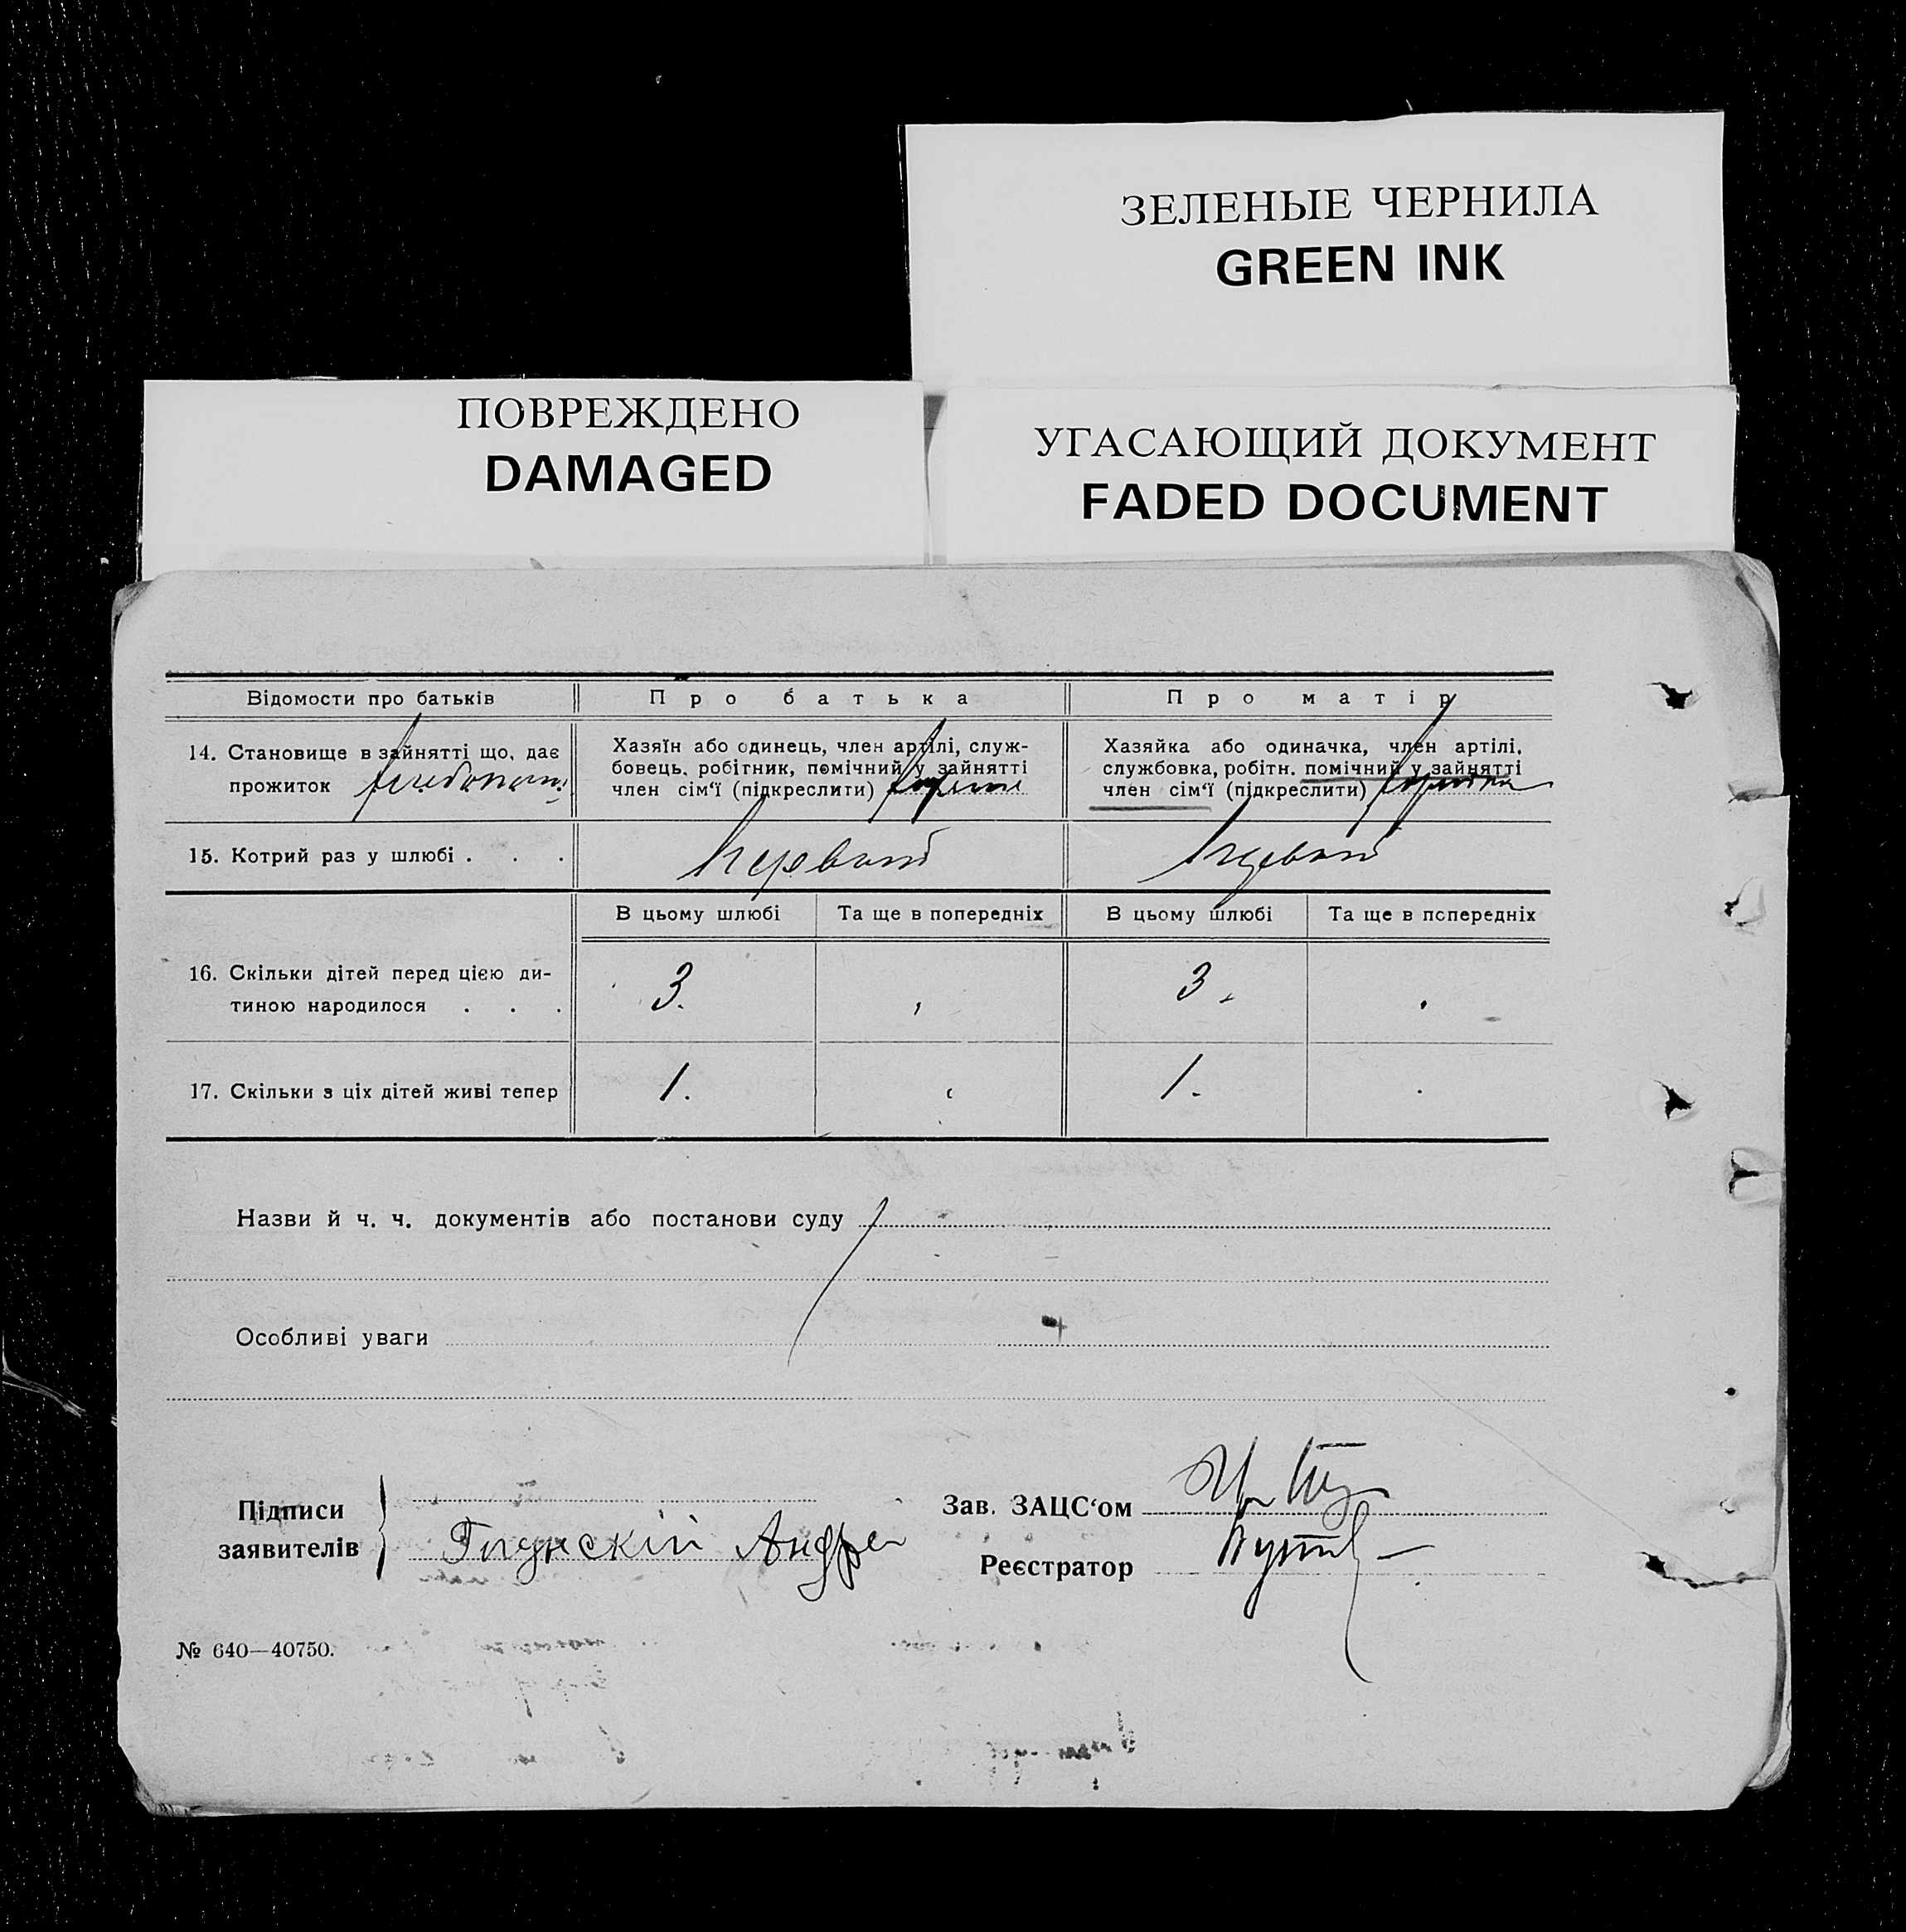 ЗЕЛЕНЫЕ ЧЕРНИЛА
GREEN INK
ПОВРЕЖДЕНО
DAMAGED
УГАСАЮЩИЙ ДОКУМЕНТ
FADED DOCUMENT
Відомости про батьків
Про батька
Про матір
14. Становище в зайнятті що, дає
прожиток
Хазяїн або одинець, член артілі, служ-
бовець, робітник, помічний у зайнятті
член сім‘ї (підкреслити)
Хазяйка або одиначка, член артілі,
службовка, робітн. помічний у зайнятті
член сім‘ї (підкреслити)
15. Котрий раз у шлюбі . . .
Первый
Первый
В цьому шлюбі
Та ще в попередніх
В цьому шлюбі
Та ще в попередніх
16. Скільки дітей перед цією ди-
тиною народилося . . .
3.
3.
17. Скільки з ціх дітей живі тепер
1.
1.
Назви й ч. ч. документів або постанови суду
Особливі уваги
Підписи
заявителів
Андре
Зав. ЗАЦС‘ом
Реєстратор
№ 640—40750.